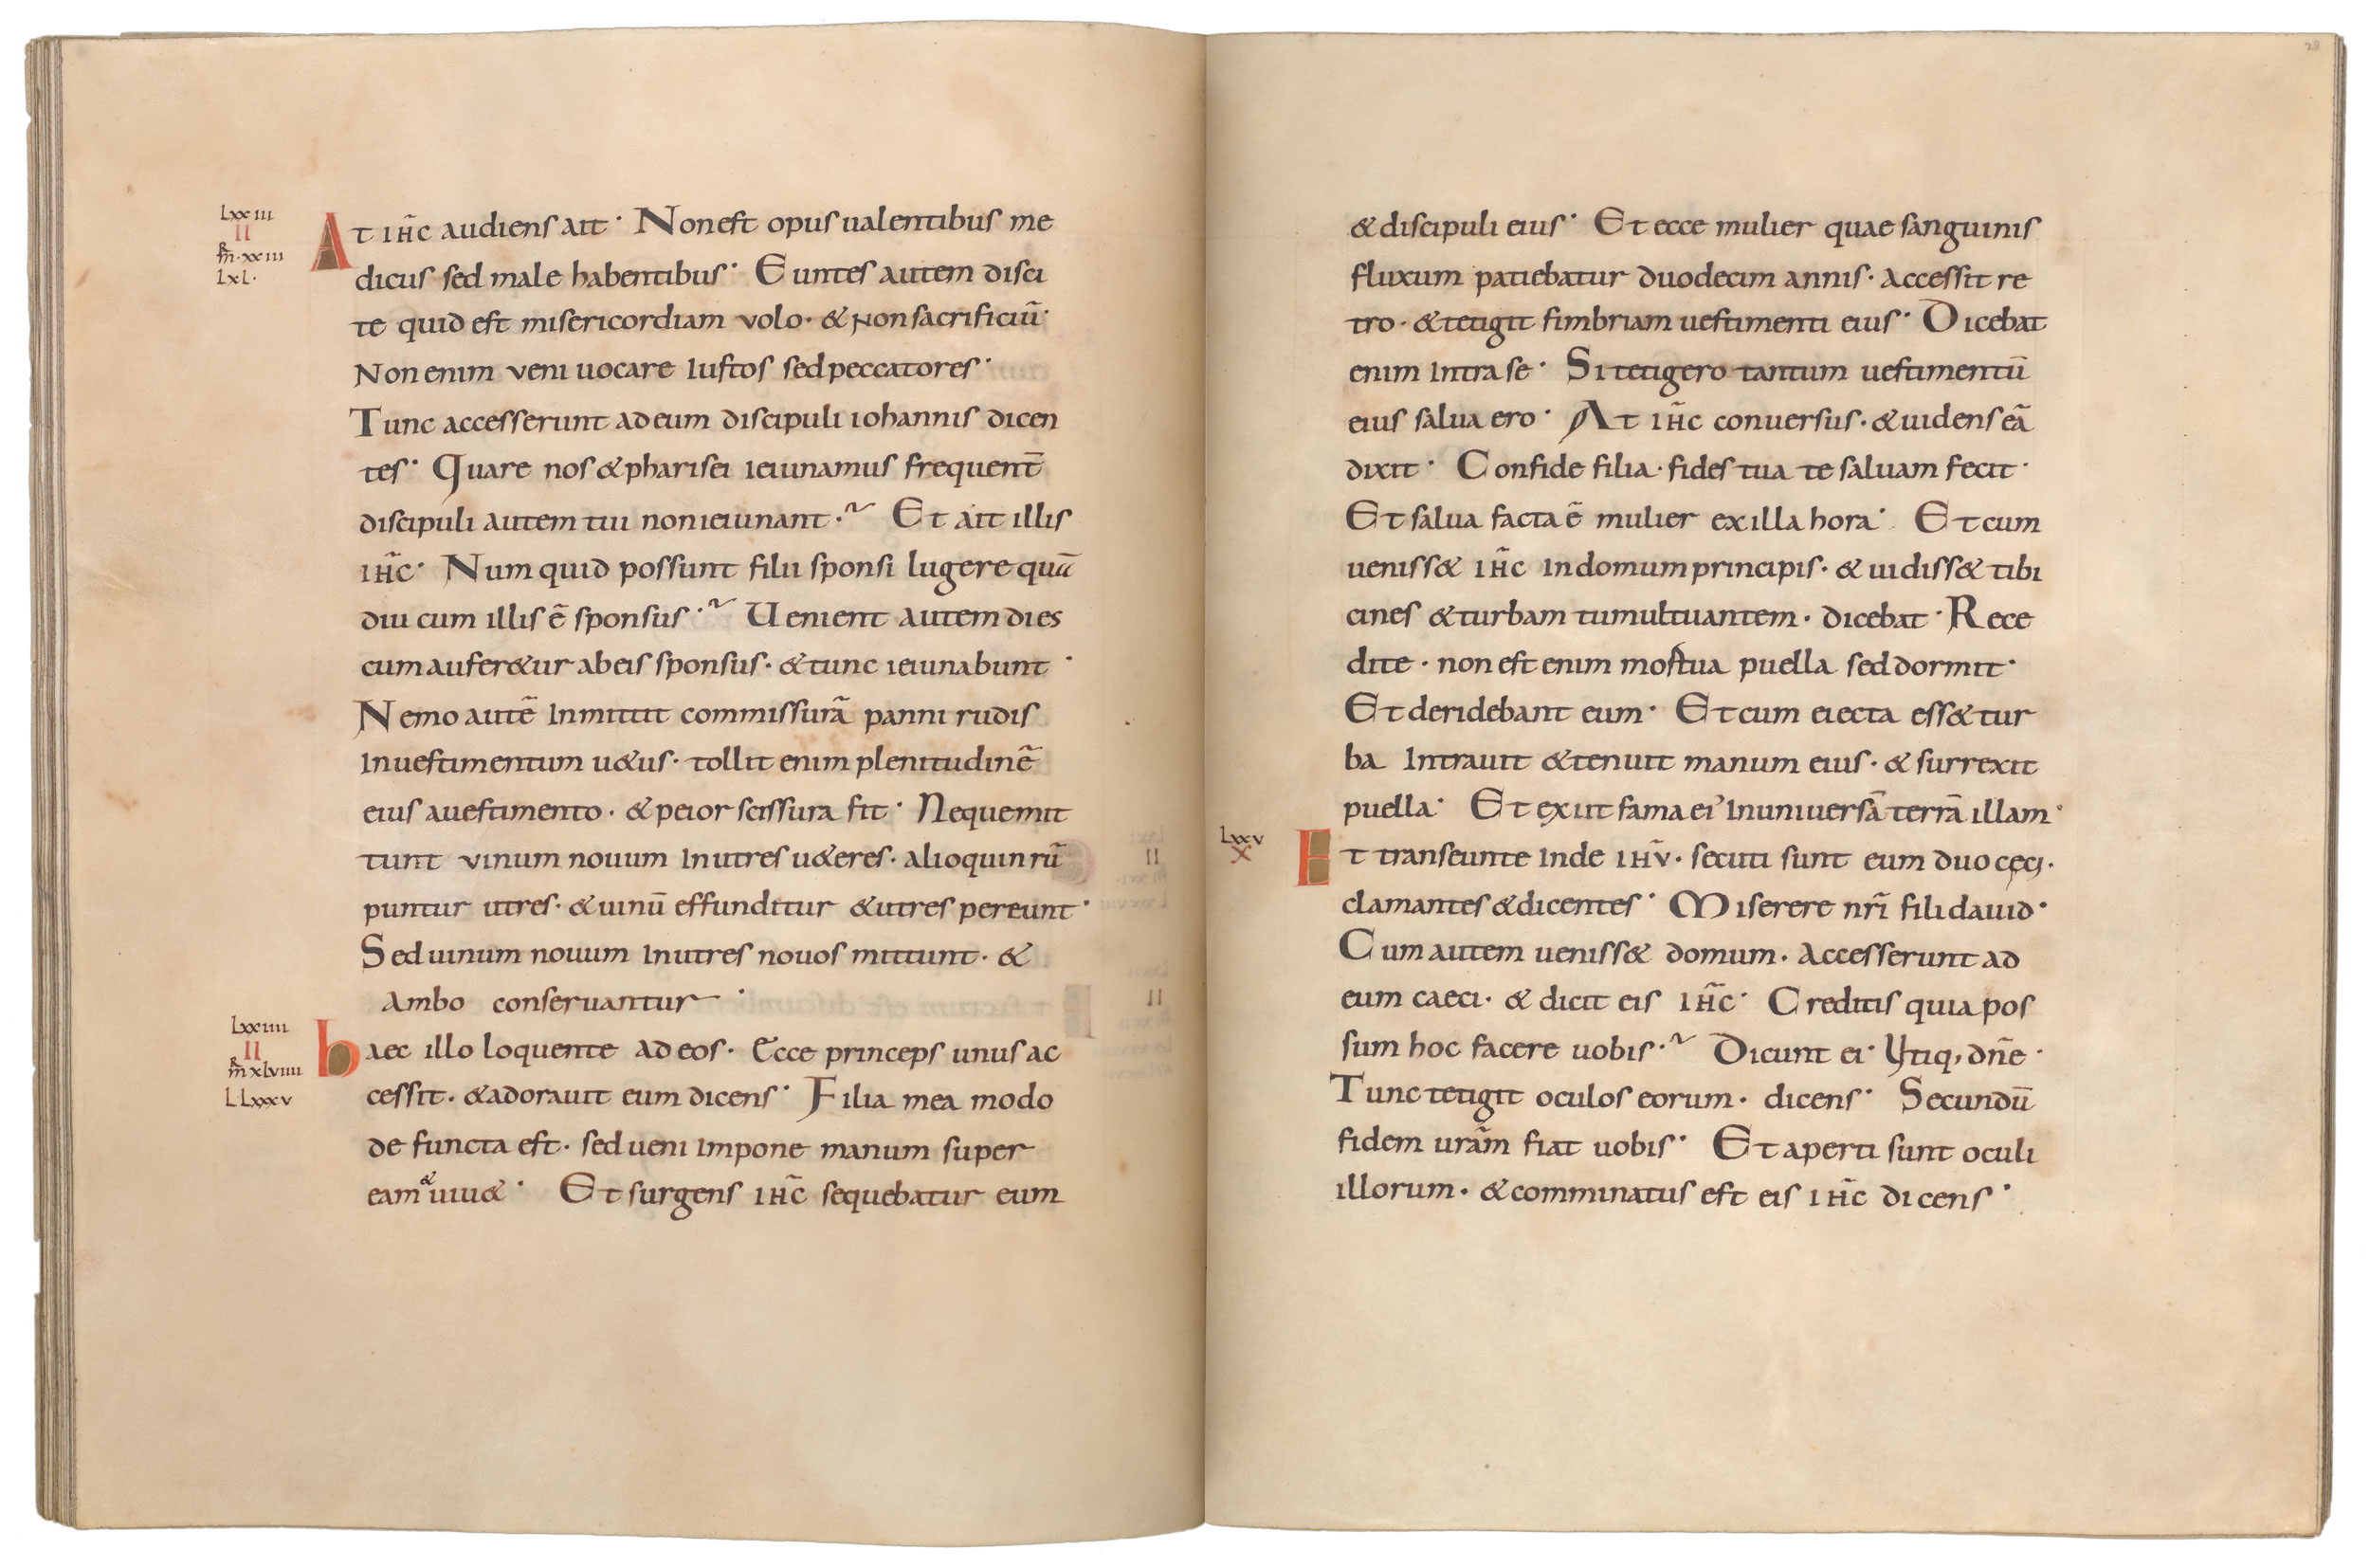 Lxxiii
II
m̄·xxiii
LxL·
At ih̄c audiens ait· Non est opus ualentibus me
dicus sed male habentibus· Euntes autem disci
te quid est misericordiam volo· & non sacrificiū·
Non enim veni uocare iustos sed peccatores·
Tunc accesserunt ad eum discipuli iohannis dicen
tes· Quare nos & pharisei ieiunamus frequent̄
discipuli autem tui non ieiunant· Et ait illis
ih̄c· Num quid possunt filii sponsi lugere quā
diu cum illis ē sponsus· Uenient autem dies
cum aufer&ur ab eis sponsus· & tunc ieiunabunt·
Nemo autē inmittit commissurā panni rudis
in uestimentum u&us· tollit enim plenitudinē
eius a uestimento· & peior scissura fit· Neque mit
tunt vinum nouum in utres u&eres· alioquin rū
puntur utres· & uinū effunditur & utres pereunt·
Sed uinum nouum in utres nouos mittunt· &
ambo conseruantur·
Lxxiiii
II
m̄ xlviiii
L Lxxxv
haec illo loquente ad eos· Ecce princeps unus ac
cessit· & adorauit eum dicens· Filia mea modo
de functa est· sed ueni impone manum super
eam & uiu&· Et surgens ih̄c sequebatur eum
28
& discipuli eius· Et ecce mulier quae sanguinis
fluxum patiebatur duodecim annis· accessit re
tro· & tetigit fimbriam uestimenti eius· Dicebat
enim intra se· Si tetigero tantum uestimentū
eius salua ero· At ih̄c conuersus· & uidens eā
dixit· Confide filia· fides tua te saluam fecit·
Et salua facta ē mulier ex illa hora· Et cum
ueniss& ih̄c in domum principis· & uidiss& tibi
cines & turbam tumultuantem· dicebat· Rece
dite· non est enim mortua puella sed dormit·
Et deridebant eum· Et cum eiecta ess& tur
ba intrauit & tenuit manum eius· & surrexit
puella· Et exiit fama ei' in uniuersā terrā illam·
Lxxv
X
Et transeunte inde ih̄v· secuti sunt eum duo cęci·
clamantes & dicentes· Miserere nr̄i fili dauid·
Cum autem ueniss& domum· accesserunt ad
eum caeci· & dicit eis ih̄c· Creditis quia pos
sum hoc facere uobis· Dicunt ei· Utiq, dn̄e·
Tunc tetigit oculos eorum· dicens· Secundū
fidem urām fiat uobis· Et aperti sunt oculi
illorum· & comminatus est eis ih̄c dicens·